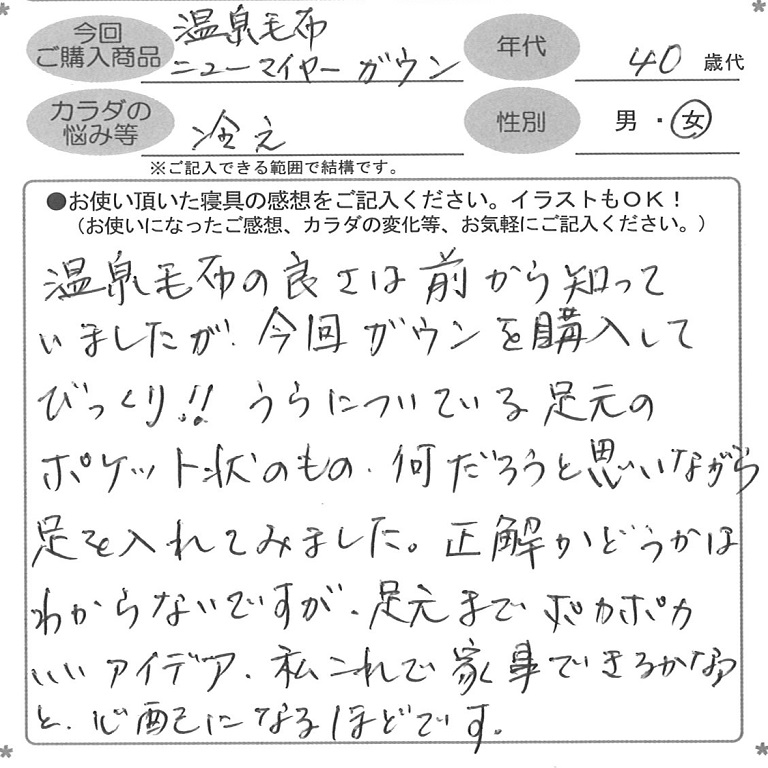 今回
ご購入商品
温泉毛布
ニューマイヤーガウン
年代
40 歳代
カラダの
悩み等
冷え
性別
男・女
※ご記入できる範囲で結構です。
●お使い頂いた寝具の感想をご記入ください。イラストもOK！
（お使いになったご感想、カラダの変化等、お気軽にご記入ください。）
温泉毛布の良さは前から知って
いましたが、今回ガウンを購入して
びっくり!! うらについている足元の
ポケット状のもの、何だろうと思いながら
足を入れてみました。正解かどうかは
わからないですが、足元までポカポカ
いいアイデア、私これで家事できるかなぁ
と、心配になるほどです。